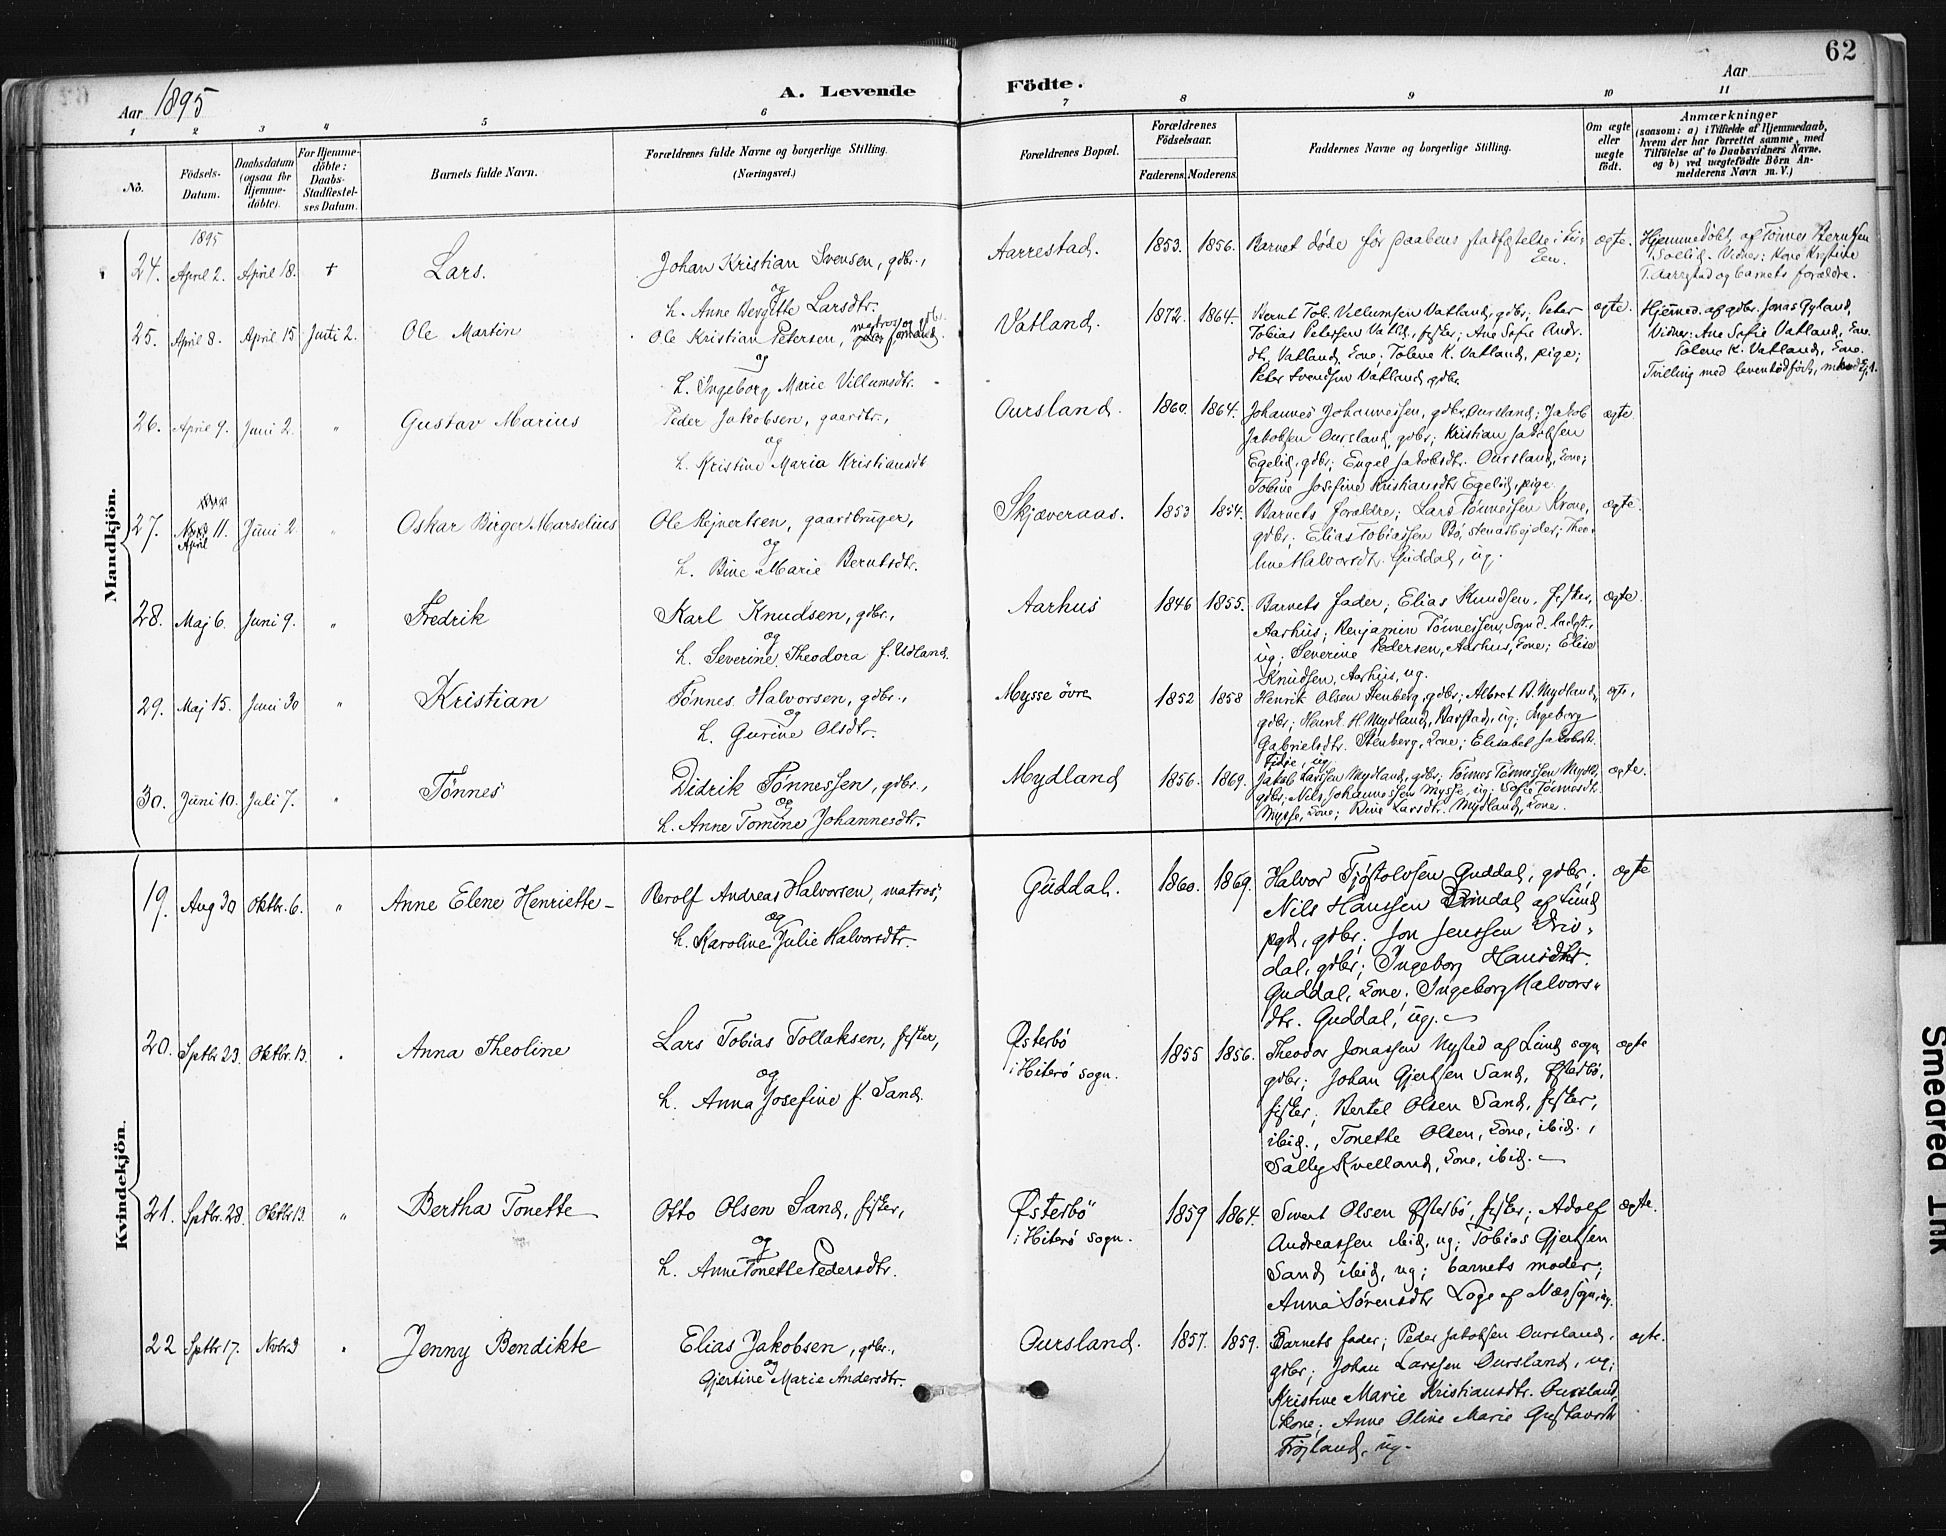 62
Aar 1895
A. Levende
Födte.
Aar
1 2 3 4 5 6 7 8 9 10 11
No.
Födsels-
Datum.
Daabsdatum
(ogsaa for
Hjemme-
döbte).
For Hjemme-
döbte:
Daabs-
Stadfæstel-
ses Datum.
Barnets fulde Navn.
Forældrenes fulde Navne og borgerlige Stilling.
(Næringsvei.)
Forældrenes Bopæl.
Forældrenes
Födselsaar.
Faderens. Moderens.
Faddernes Navne og borgerlige Stilling.
Om ægte
eller
uægte
födt.
Anmærkninger
(saasom: a) i Tilfælde af Hjemmedaab,
hvem der har forrettet samme, med
Tilföielse af to Daabsvidners Navne,
og b) ved uægtefödte Börn An-
melderens Navn m. V.)
Mandkjön.
1895
24. April 2. April 18. + Lars.
Johan Kristian Svensen, gdbr.,
og
h. Anne Bergitte Larsdtr.
Aarrestad. 1853. 1856.
Barnet døde før daabens stadfæstelse i kir-
ken.
ægte.
Hjemmedøbt af Tønnes Berntsen
Solli. Vidner: Kone Kristine
T. Aarrestad og barnets forældre.
25. April 8. April 15 Juni 2. Ole Martin
Ole Kristian Petersen, matros og gdbr.
og
h. Ingeborg Marie Villumsdtr.
Vatland. 1872. 1864.
Bernt Tob. Villumsen Vatland, gdbr; Peter
Tobias Petersen Vatld., fisker; Ane Sofie Andr.
dtr. Vatland, kone; Tolene K. Vatland, pige;
Peter Svendsen Vatland gdbr.
ægte.
Hjemmed. af gdbr. Jonas Gyland,
Vidner: Ane Sofie Vatland, kone.
Tolene K. Vatland, kone.
Tvilling med levendefødt,
26. April 9. Juni 2. " Gustav Marius
Peder Jakobsen, gaardbr.,
og
h. Kristine Maria Kristiansdt
Oursland. 1860. 1864.
Johannes Johannessen, gdbr, Oursland; Jakob
Jakobsen Oursland, gdbr; Kristian Jakobsen
Egelid, gdbr; Engel Jakobsdtr. Oursland, kone;
Tobine Josefine Kristiansdtr Egelid, pige.
ægte.
27. 11. Juni 2. " Oskar Birger Marselius
April
Ole Rejnertsen, gaardbruger,
og
h. Bine Marie Berntsdtr.
Skjæveraas. 1853 1854.
Barnets forældre; Lars Tønnessen Krone,
gdbr; Elias Tobiassen Bø, stenarbejder; Theo-
line Halvorsdtr. Guddal, ug.
ægte.
28. Maj 6. Juni 9. " Fredrik
Karl Knudsen, gdbr.,
og
h. Severine Theodora f. Udland.
Aarhus 1846 1855.
Barnets fader; Elias Knudsen, fisker,
Aarhus; Benjamin Tønnessen, Sogndal ladst.,
ug; Severine Pedersen, Aarhus, kone; Elise
Knudsen, Aarhus, ug.
ægte.
29. Maj 15. Juni 30 " Kristian
Tønnes Halvorsen, gdbr.,
og
h. Gurine Olsdtr.
Mysse övre 1852 1858
Henrik Olsen Stenberg, gdbr; Albret B. Mydland,
gdbr; Henrik H. Mydland, Barstad, ug; Ingeborg
Gabrielsdtr. Stenberg, kone; Elisabet Jakobsdtr.
Eidje, ug.
ægte.
30. Juni 10. Juli 7. " Tønnes
Didrik Tønnessen, gdbr.,
og
h. Anne Tomine Johannesdtr.
Mydland 1856. 1869.
Jakob Larssen Mydland, gdbr; Tønnes Tønnessen Mydl.
gdbr; Nils Johannessen Mysse, ug; Sofie Tønnesdtr.
Mysse, kone; Bine Larsdtr. Mydland, kone.
ægte.
Kvindekjön.
19. Aug 30 Oktbr. 6. " Anne Elene Henriette
Berolf Andreas Halvorsen, matros;
og
h. Karoline Julie Halvorsdtr.
Guddal. 1860. 1869.
Halvor Tjøstolvsen Guddal, gdbr;
Nils Hanssen Drivdal af Lund
pgd, gdbr; Jon Jenssen Driv-
dal, gdbr; Ingeborg Hansdtr.
Guddal, kone; Ingeborg Halvors-
dtr. Guddal, ug.
ægte
20. Sptbr 23. Oktbr. 13. Anna Theoline
Lars Tobias Tollaksen, fisker,
og
h. Anna Josefine f. Sand.
Østerbö
i Hiterø sogn. 1855 1856.
Theodor Jonassen Nysted af Lund sogn
gdbr; Johan Gjertsen Sand, Østerbö,
fisker; Bertel Olsen Sand, fisker,
ibid., Tonette Olsen, kone, ibid.,
Sally Kvelland, kone, ibid.
ægte
21. Sptbr. 28. Oktbr 13. " Bertha Tonette
Otto Olsen Sand, fisker,
og
h. Anne Tonette Pedersdtr.
Østerbö
i Hiterø sogn. 1859 1864.
Sivert Olsen Østerbö, fisker; Adolf
Andreassen ibid, ug; Tobias Gjertsen
Sand ibid, ug; barnets moder;
Anna Sörensdtr Loge af Næs sogn, ug.
ægte.
22 Sptbr 17. Novbr 3 " Jenny Bendikte
Elias Jakobsen, gdbr.,
og
Gjertine Marie Andersdtr.
Oursland. 1857. 1859.
Barnets fader; Peder Jakobsen Oursland,
gdbr; Johan Larssen Oursland, ug;
Kristine Marie Kristiansdtr. Oursland,
kone; Anne Oline Marie Gustavsdtr
Frøjland, ug.
ægte.
Smeared Ink